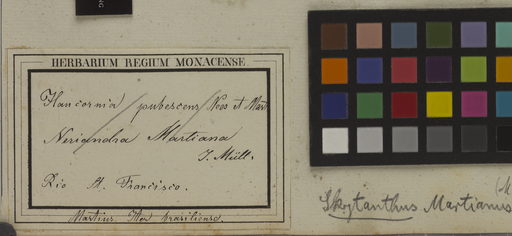 HERBARIUM REGIUM MONACENSE
Hancornia pubescens Nees et Mart
Neriandra Martiana
J. Müll.
Rio St. Francisco.
Martius Iter brasiliense.
Skytanthus Martianus